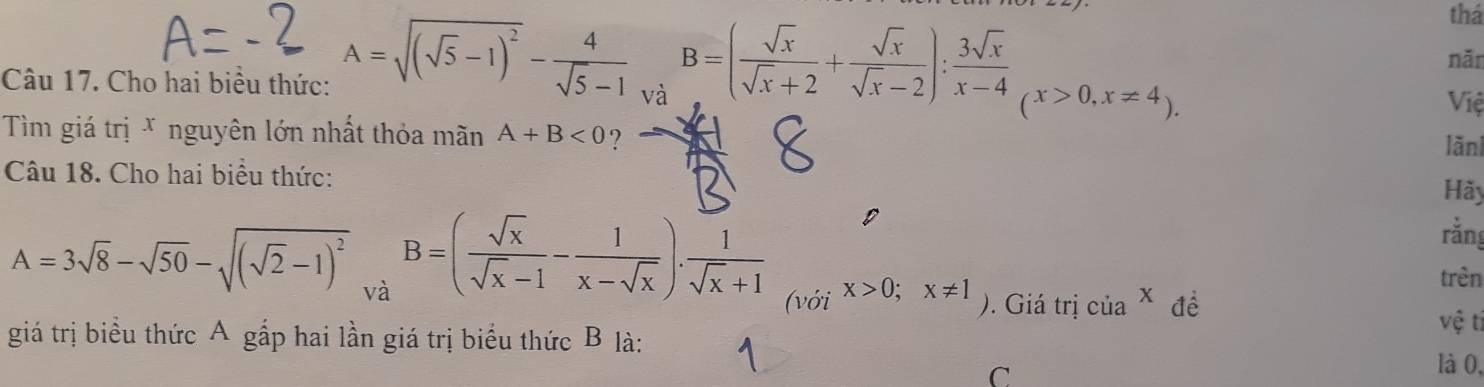 A = -2
Câu 17. Cho hai biểu thức: A = √((√5 − 1)²) − 4/(√5 − 1) và B = (√x/(√x + 2) + √x/(√x − 2)) : 3√x/(x − 4) (x > 0, x ≠ 4).
Tìm giá trị x nguyên lớn nhất thỏa mãn A + B < 0 ? 8
B
Câu 18. Cho hai biểu thức:
A = 3√8 − √50 − √((√2 − 1)²) và B = (√x/(√x − 1) − 1/(x − √x)) . 1/(√x + 1) (với x > 0; x ≠ 1 ). Giá trị của x để
giá trị biểu thức A gấp hai lần giá trị biểu thức B là: 1
C
thá
năn
Việ
lãnh
Hãy
rằng
trên
vệ ti
là 0.